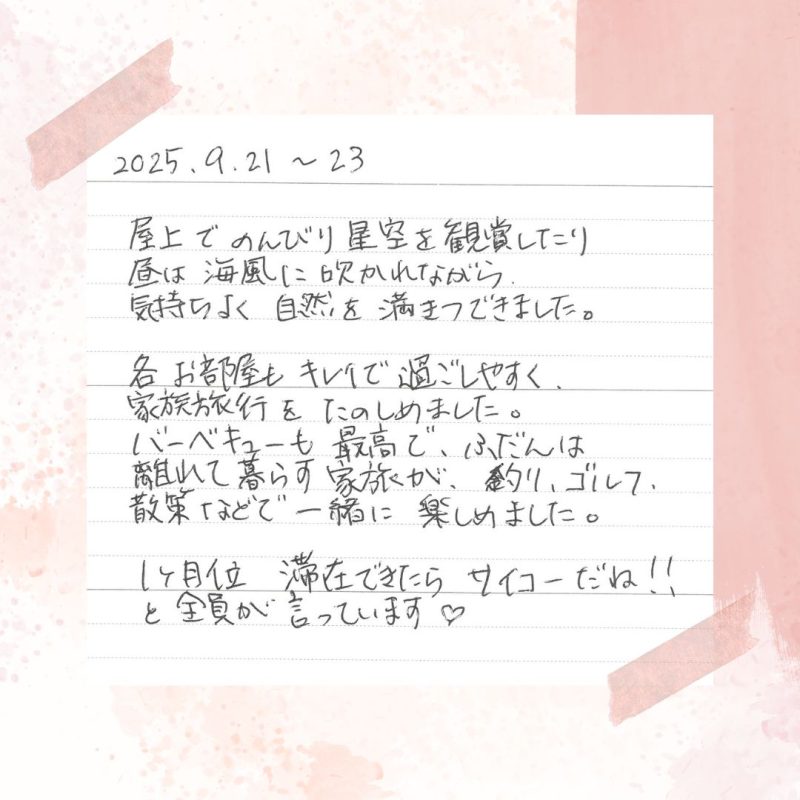 2025.9.21～23
屋上でのんびり星空を観賞したり
昼は海風に吹かれながら、
気持ちよく自然を満きつできました。
各お部屋もキレイで過ごしやすく、
家族旅行をたのしめました。
バーベキューも最高で、ふだんは
離れて暮らす家族が、釣り、ゴルフ、
散策などで一緒に楽しめました。
1ヶ月位 滞在できたら サイコーだね!!
と全員が言っています♡